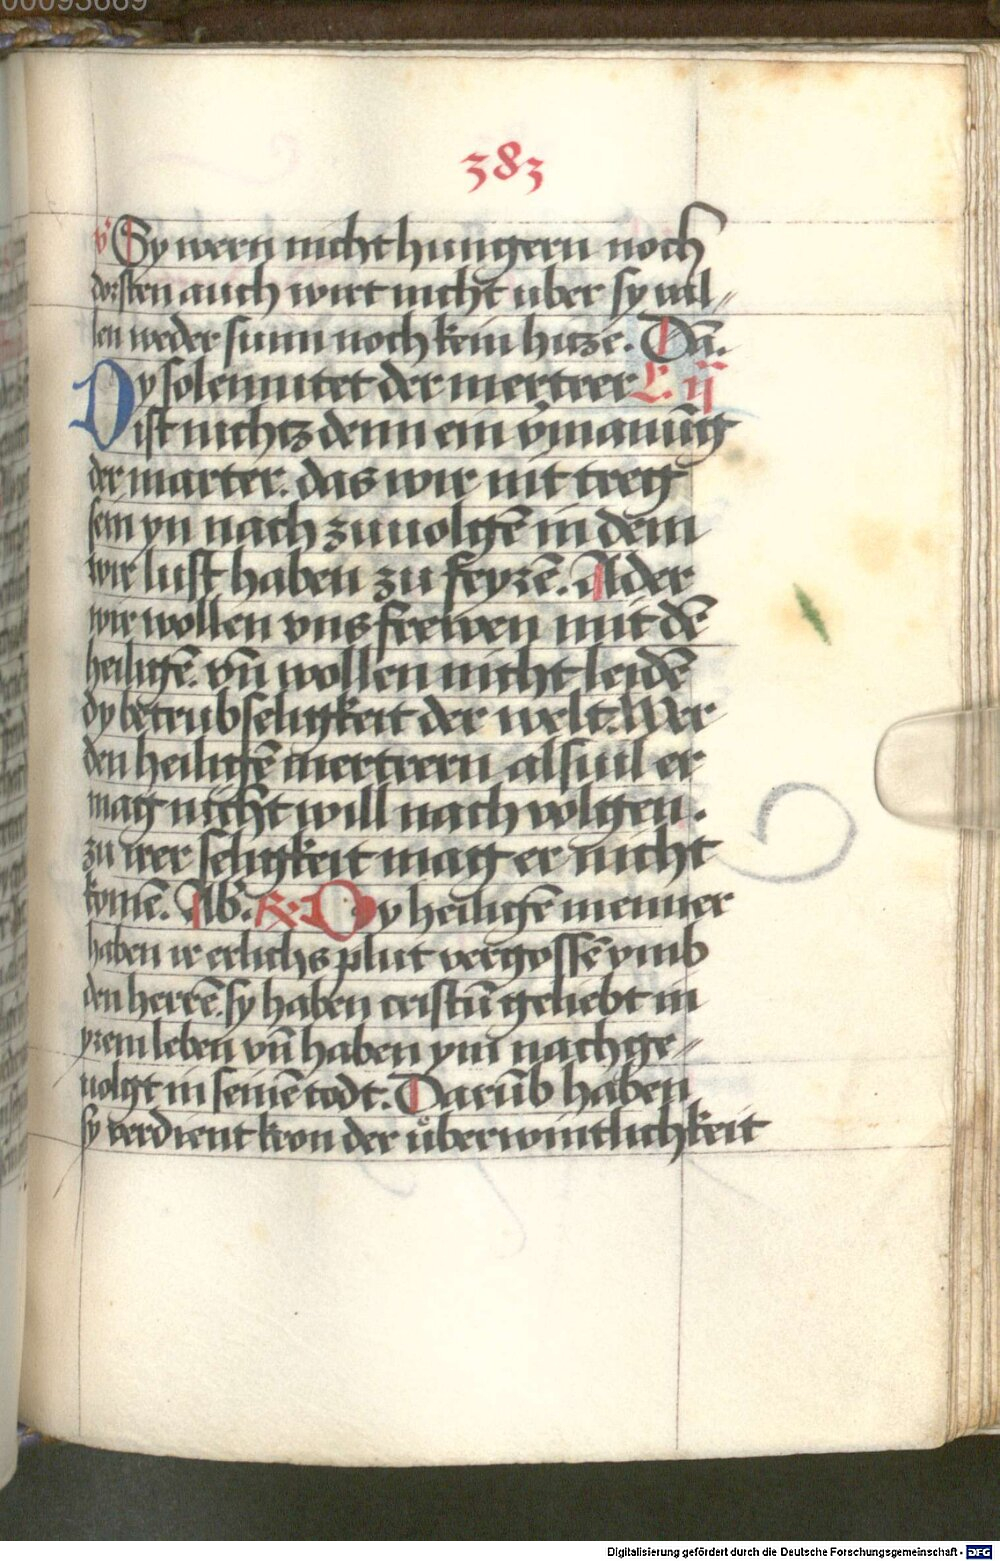 00093689
383
v Sy wern nicht hungern noch
dorsten auch wirt nicht uber sy val//
len weder sunn noch kein hitze. Dā.
Dy solennitet der mertrer L. ij
ist nichtz denn ein v̄manūg
der marter. das wir nit treg
sein yn nach zuuolgē in dem
wir lust haben zu feyrē. Ader
wir wollen vns frewen mit dē
heiligē. vn̄ wollen nicht leidē
dy betrubseligkeit der welt. Wer
den heiligē mertrern alsuil er
mag nicht will nach volgen.
zu irer seligkeit mag er nicht
komē. Ab'. R. Dy heiligē menner
haben ir erlichs plut vergossē vmb
den herrē. sy haben cristū geliebt in
yrem leben vn̄ haben ym nachge//
uolgt in seinē todt. Darūb haben
sy verdient kron der überwintlichkeit
Digitalisierung gefördert durch die Deutsche Forschungsgemeinschaft - DFG